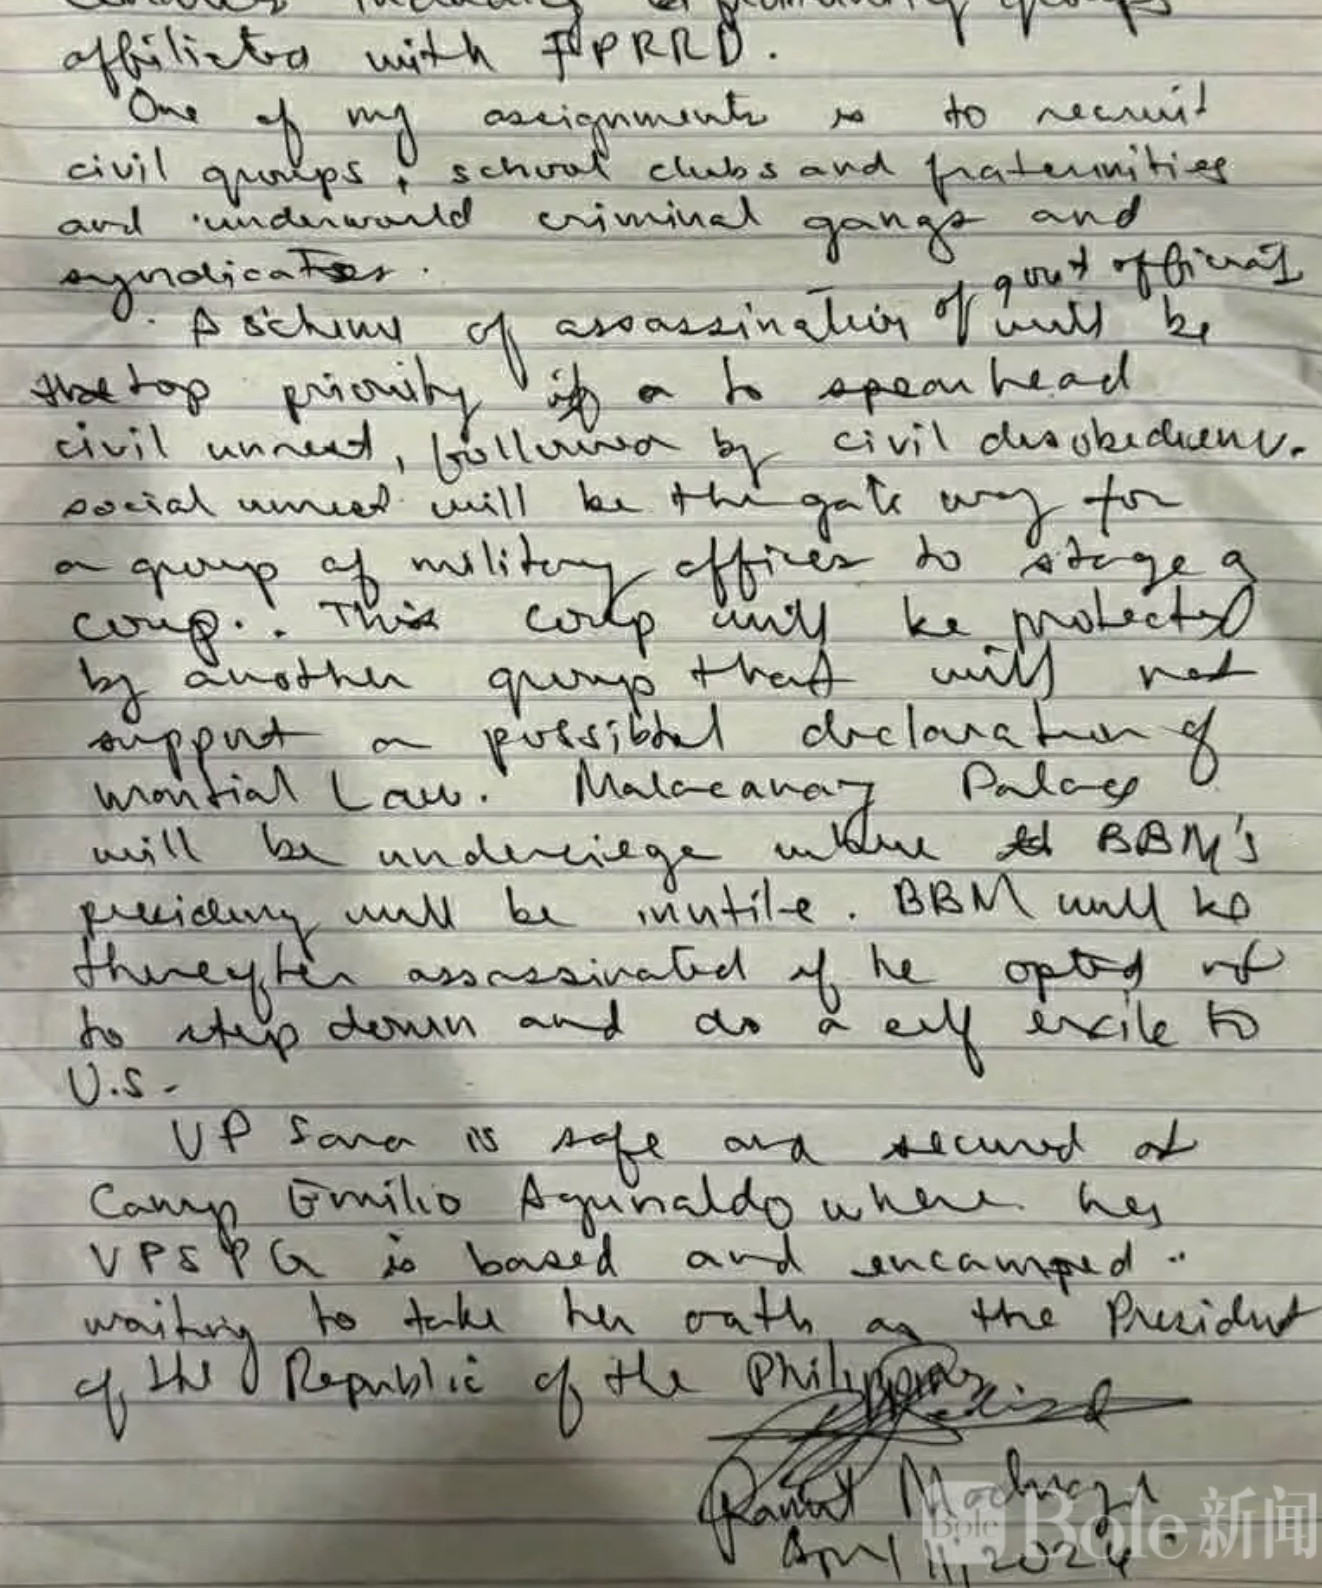 affilicted with FPRRD.
One of my assignments is to recruit
civil groups, school clubs and fraternities
and underworld criminal gangs and
syndicates.
A scheme of assassination of gov't officials will be
the top priority to spearhead
civil unrest, followed by civil disobedience.
social unrest will be the gate way for
a group of military officer to stage a
coup. This coup will be protected
by another group that will not
support a declaration of
martial Law. Malacanay Palace
will be under ciege where BBM's
presidency will be inutile. BBM will be
thereafter assassinated if he opted not
to step down and do a self exile to
U.S.
VP Sara is safe and secured at
Camp Emilio Aguinaldo where her
VPSPG is based and encamped
waiting to take her oath as the President
of the Republic of the Philippines
April 11, 2024
Bole
Bole新闻